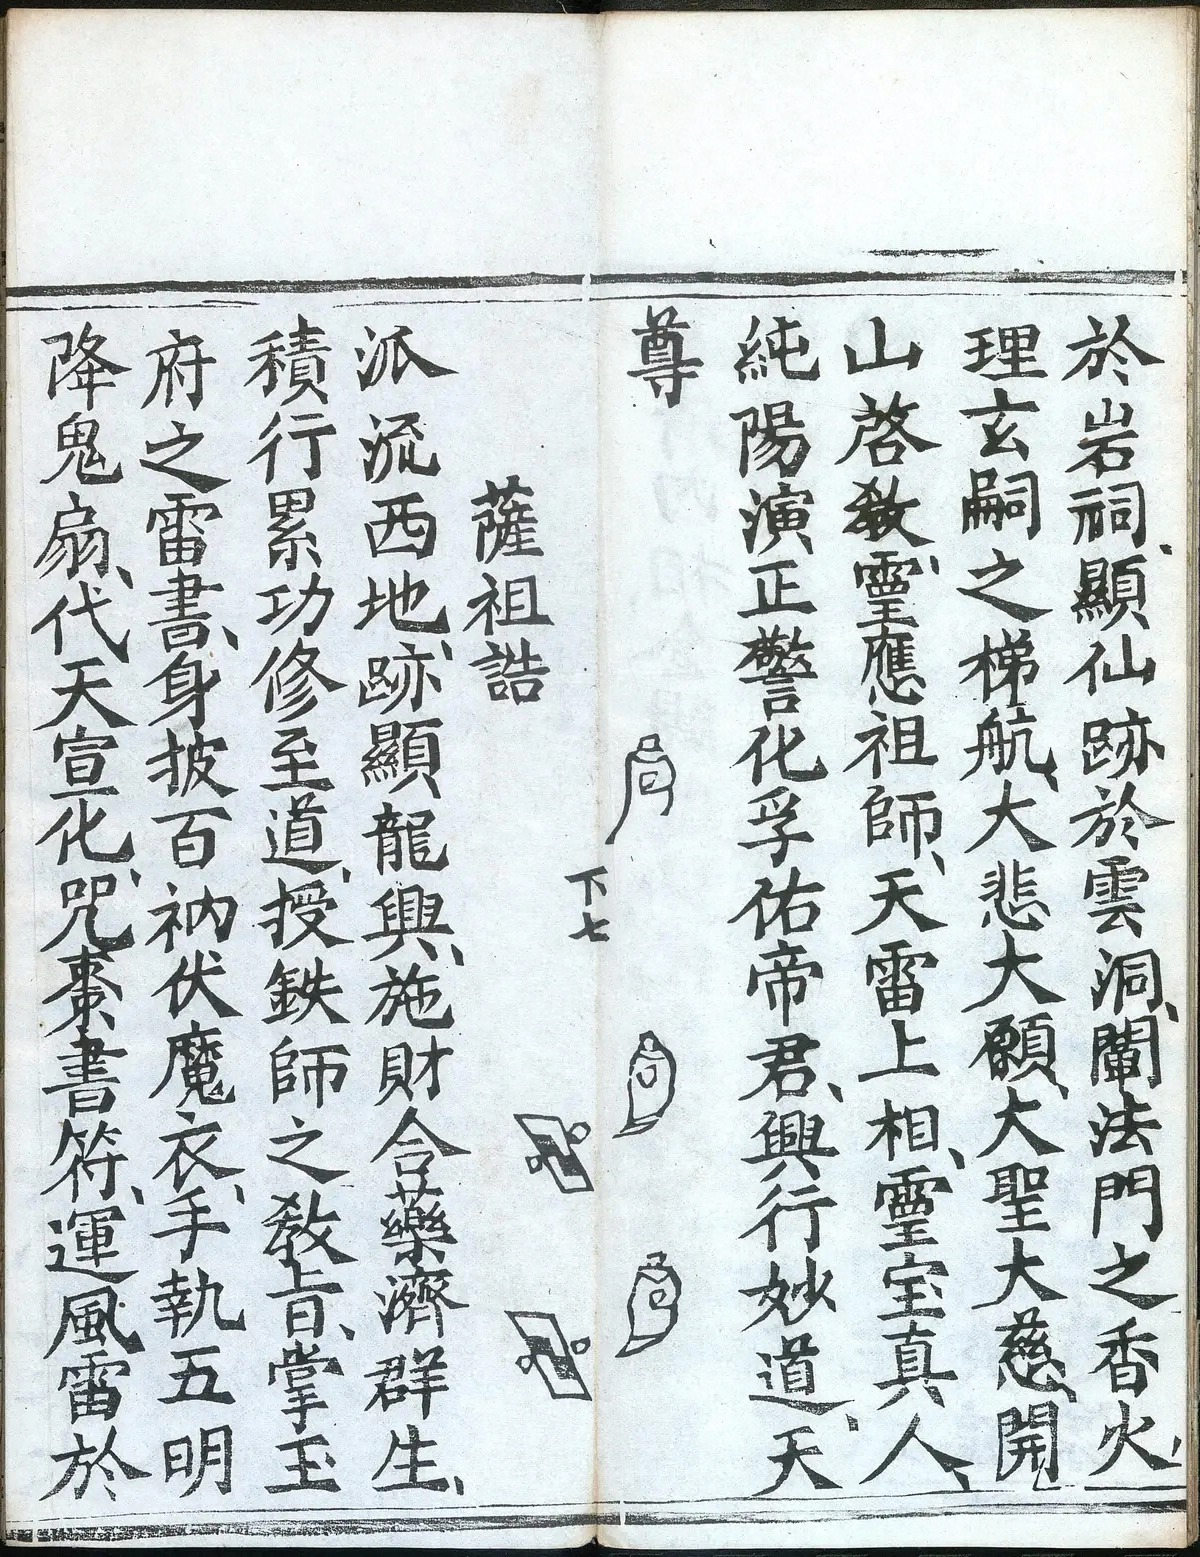 於岩祠、顯仙跡於雲洞、闡法門之香火、
理玄嗣之梯航、大悲大願、大聖大慈、開
山啓教、霊應祖師、天雷上相、霊宝真人、
純陽演正警化孚佑帝君、興行妙道、天
尊
下七
薩祖誥
派流西地、跡顯龍興、施財合藥濟群生、
積行累功修至道、授鉄師之教旨、掌玉
府之雷書、身披百衲伏魔衣、手執五明
降鬼扇、代天宣化、咒棗書符、運風雷於